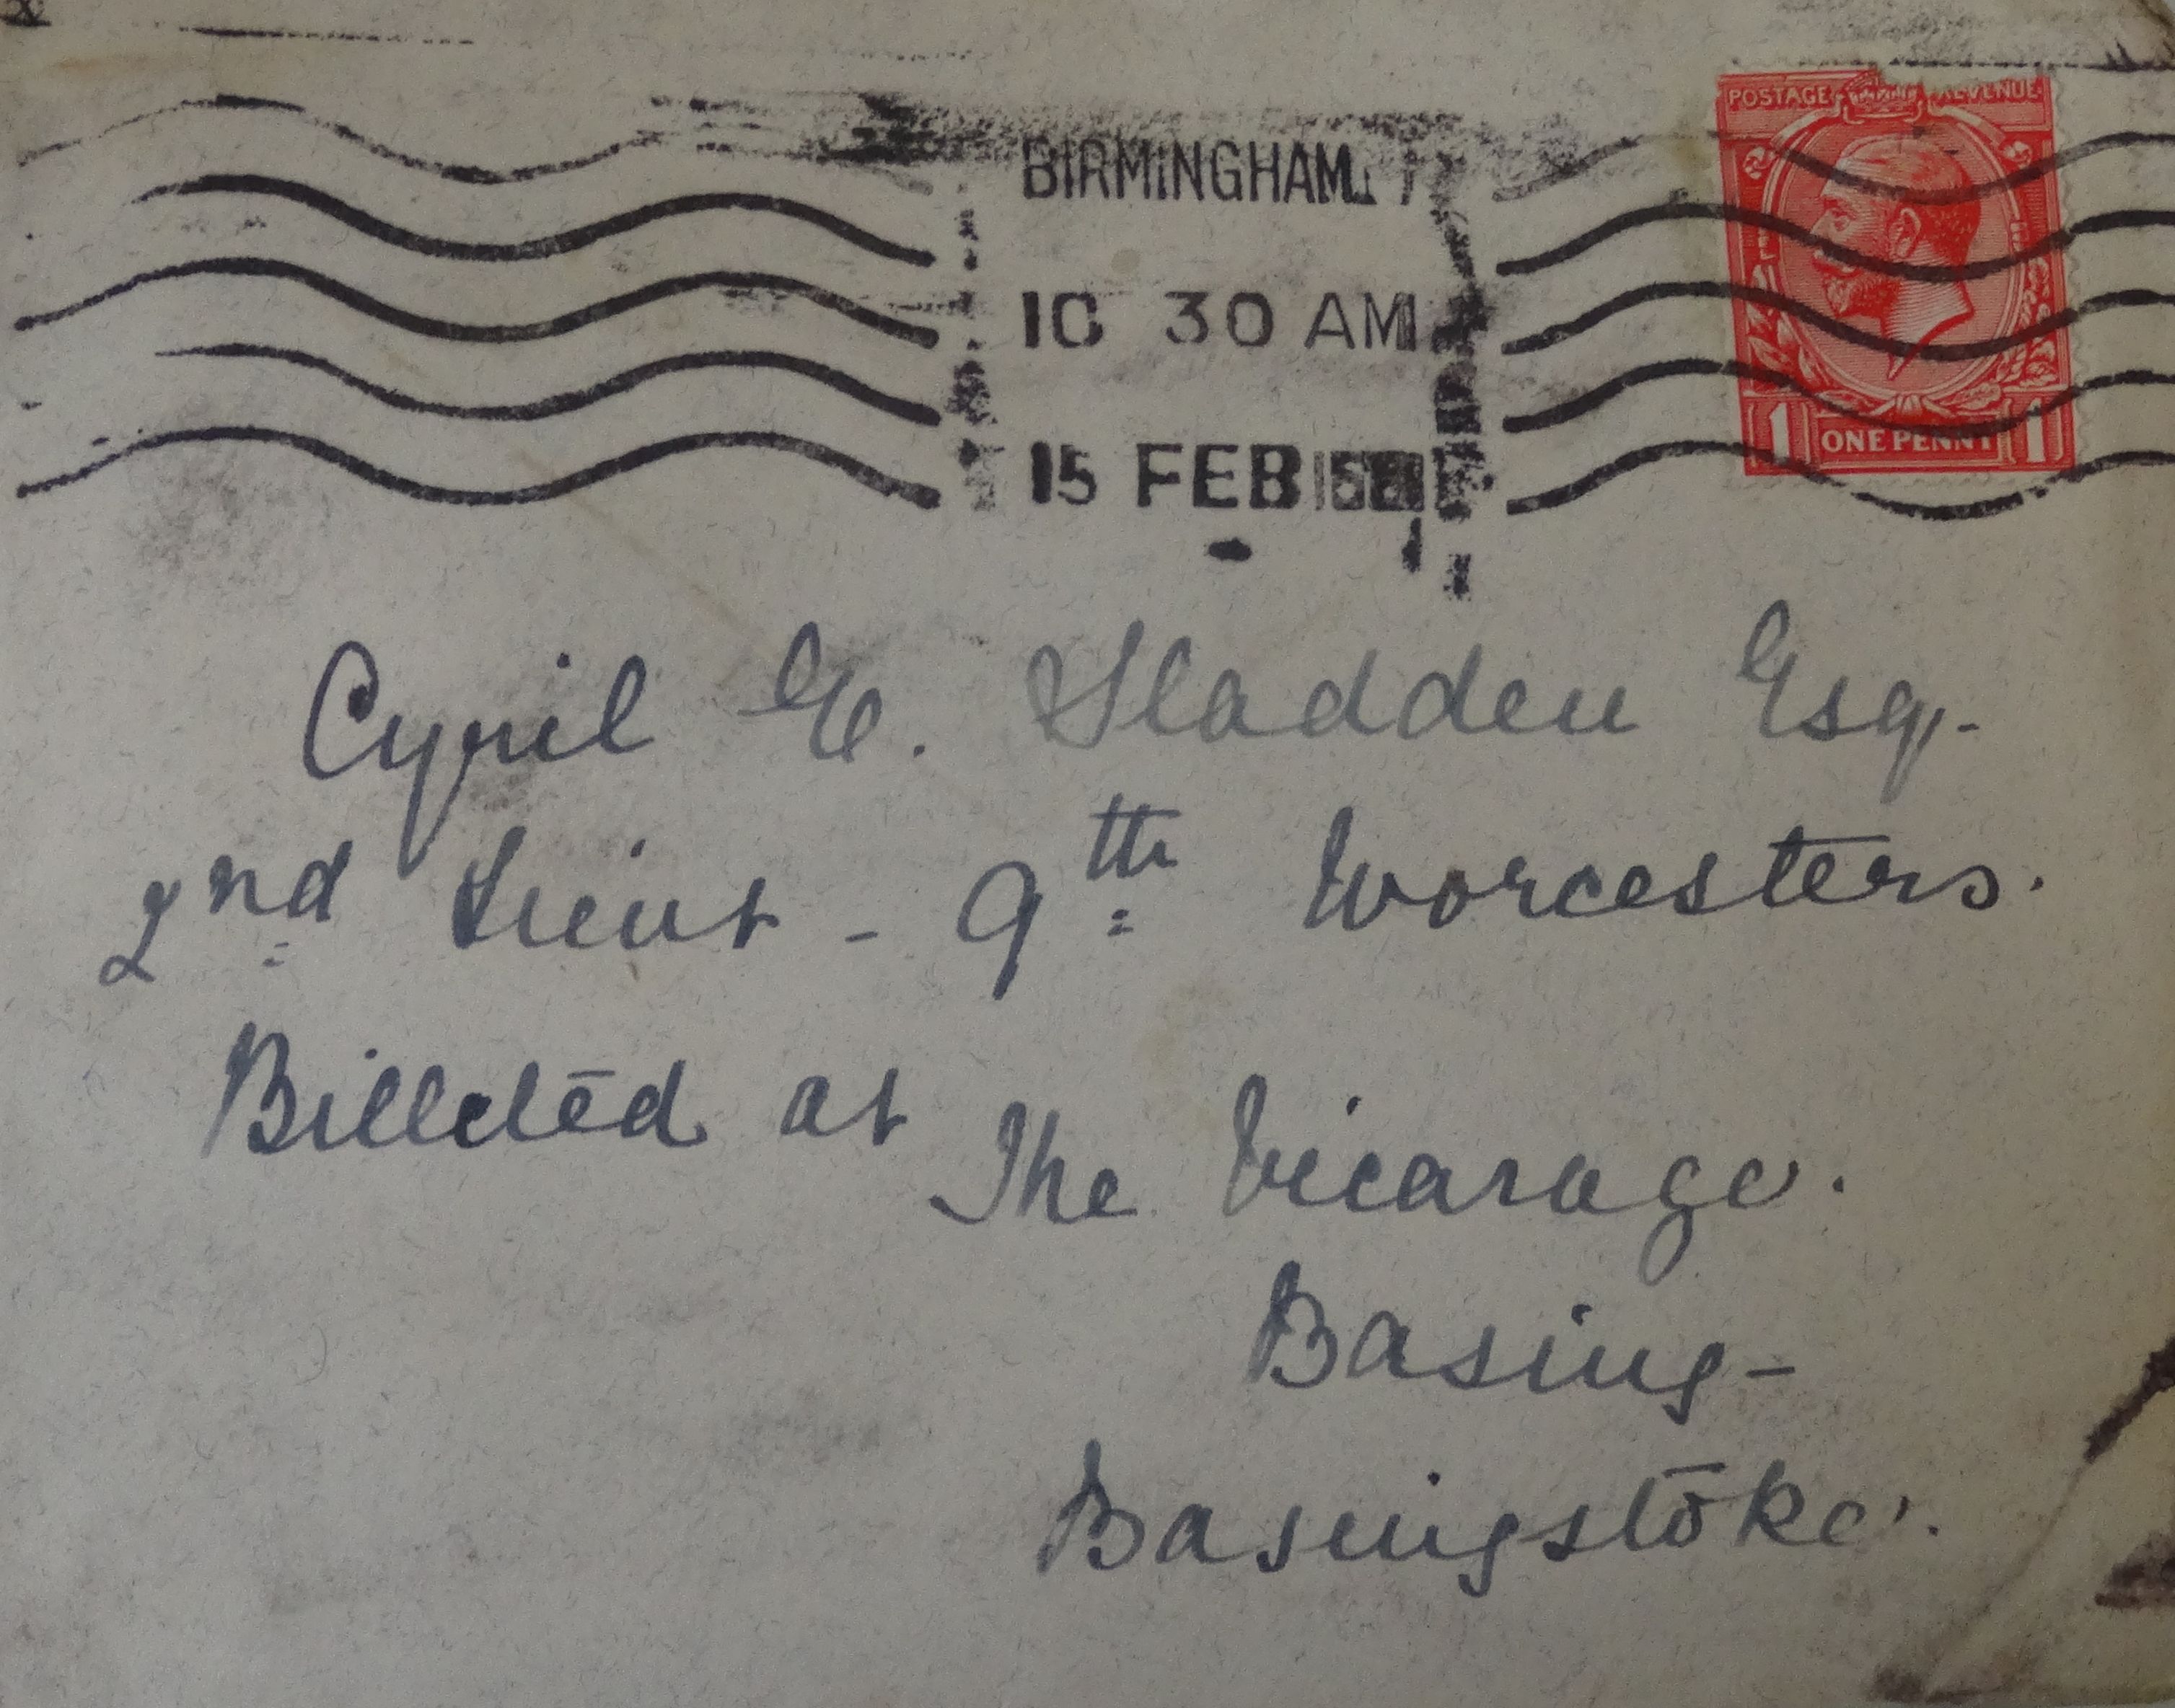 BIRMINGHAM. 1
10 30 AM
15 FEB 15
POSTAGE REVENUE
1 ONE PENNY 1
Cyril E. Sladden Esq.
2nd Lieut - 9th Worcesters.
Billeted at
The Vicarage.
Basing-
Basingstoke.